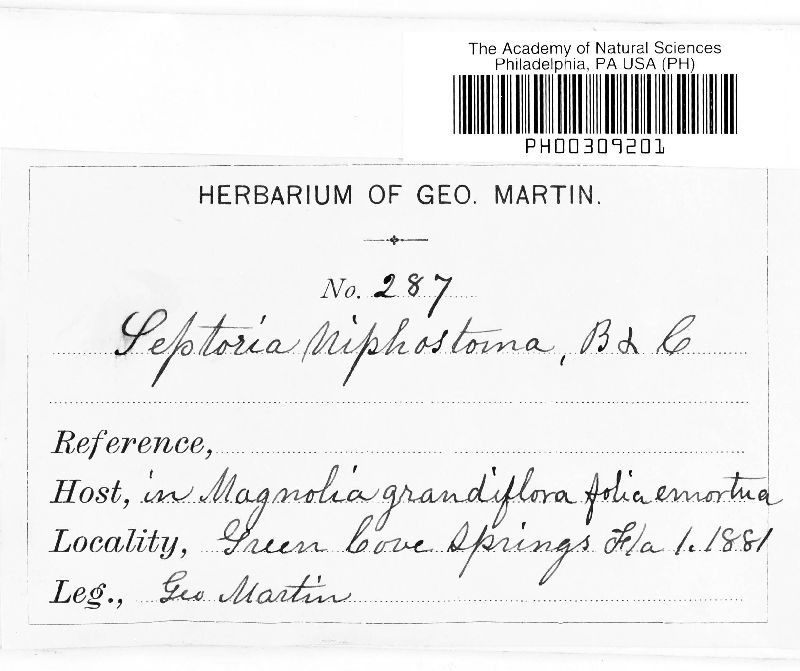 The Academy of Natural Sciences
Philadelphia, PA USA (PH)
PH00309201
HERBARIUM OF GEO. MARTIN.
No. 287
Septoria niphostoma, B & C
Reference,
Host, in Magnolia grandiflora folia emortua
Locality, Green Cove Springs Fla 1.1881
Leg., Geo Martin